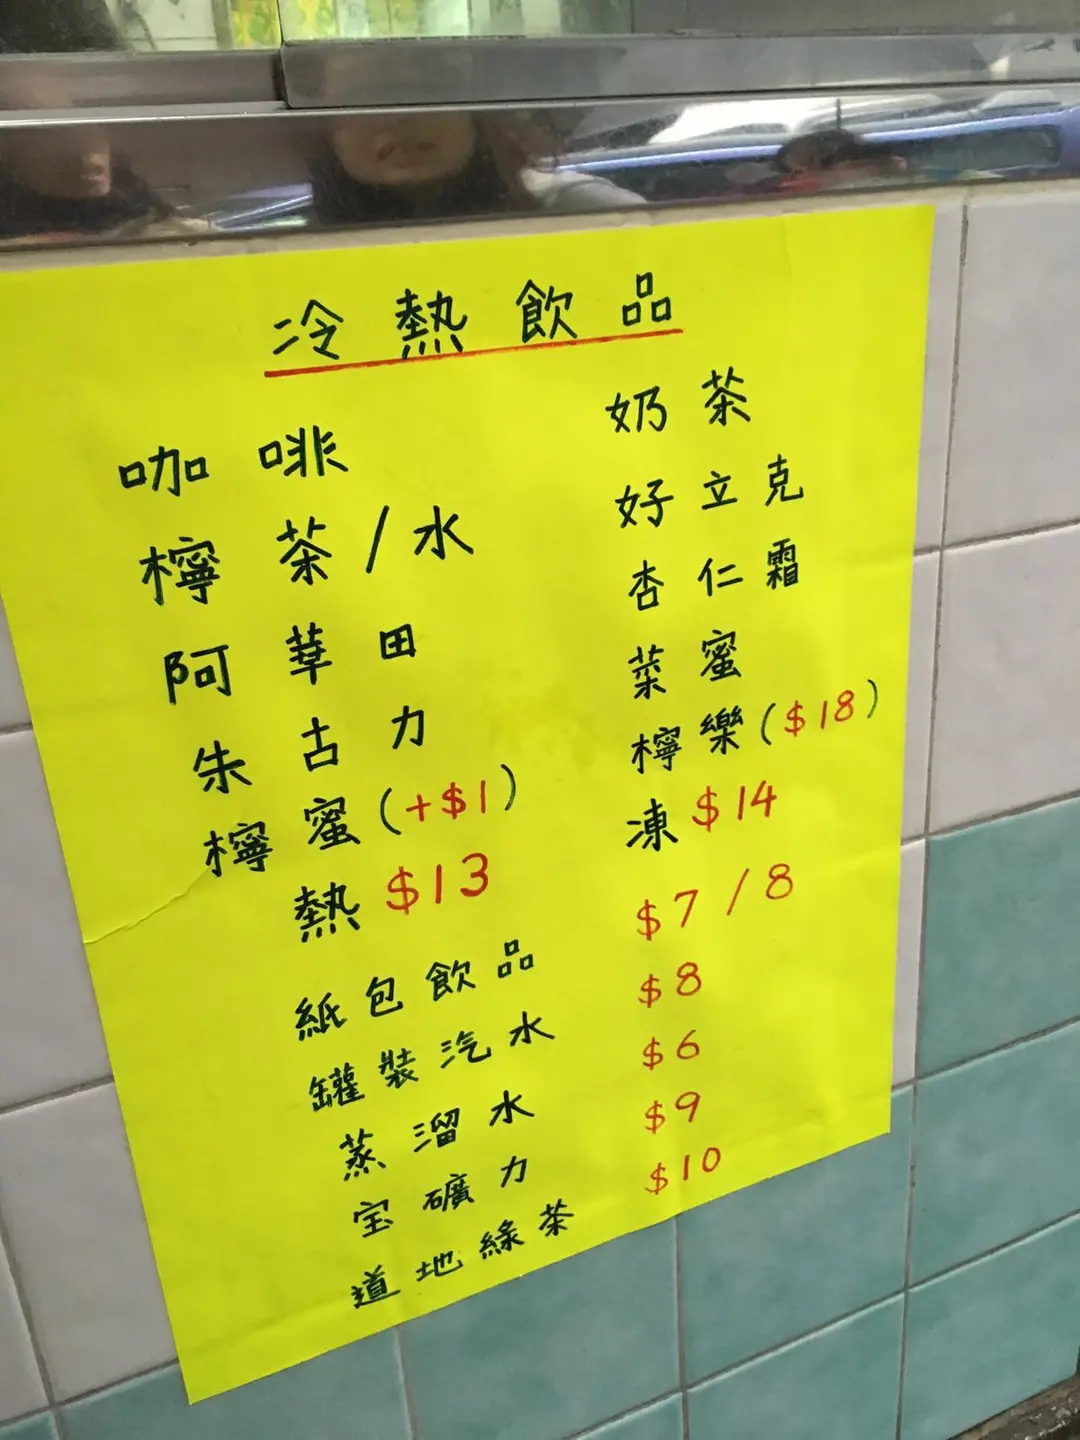 冷熱飲品
咖啡 奶茶
檸茶/水 好立克
阿華田 杏仁霜
朱古力 菜蜜
檸蜜(+$1) 檸樂($18)
熱 $13 凍 $14
紙包飲品 $7/8
罐裝汽水 $8
蒸溜水 $6
宝礦力 $9
道地綠茶 $10